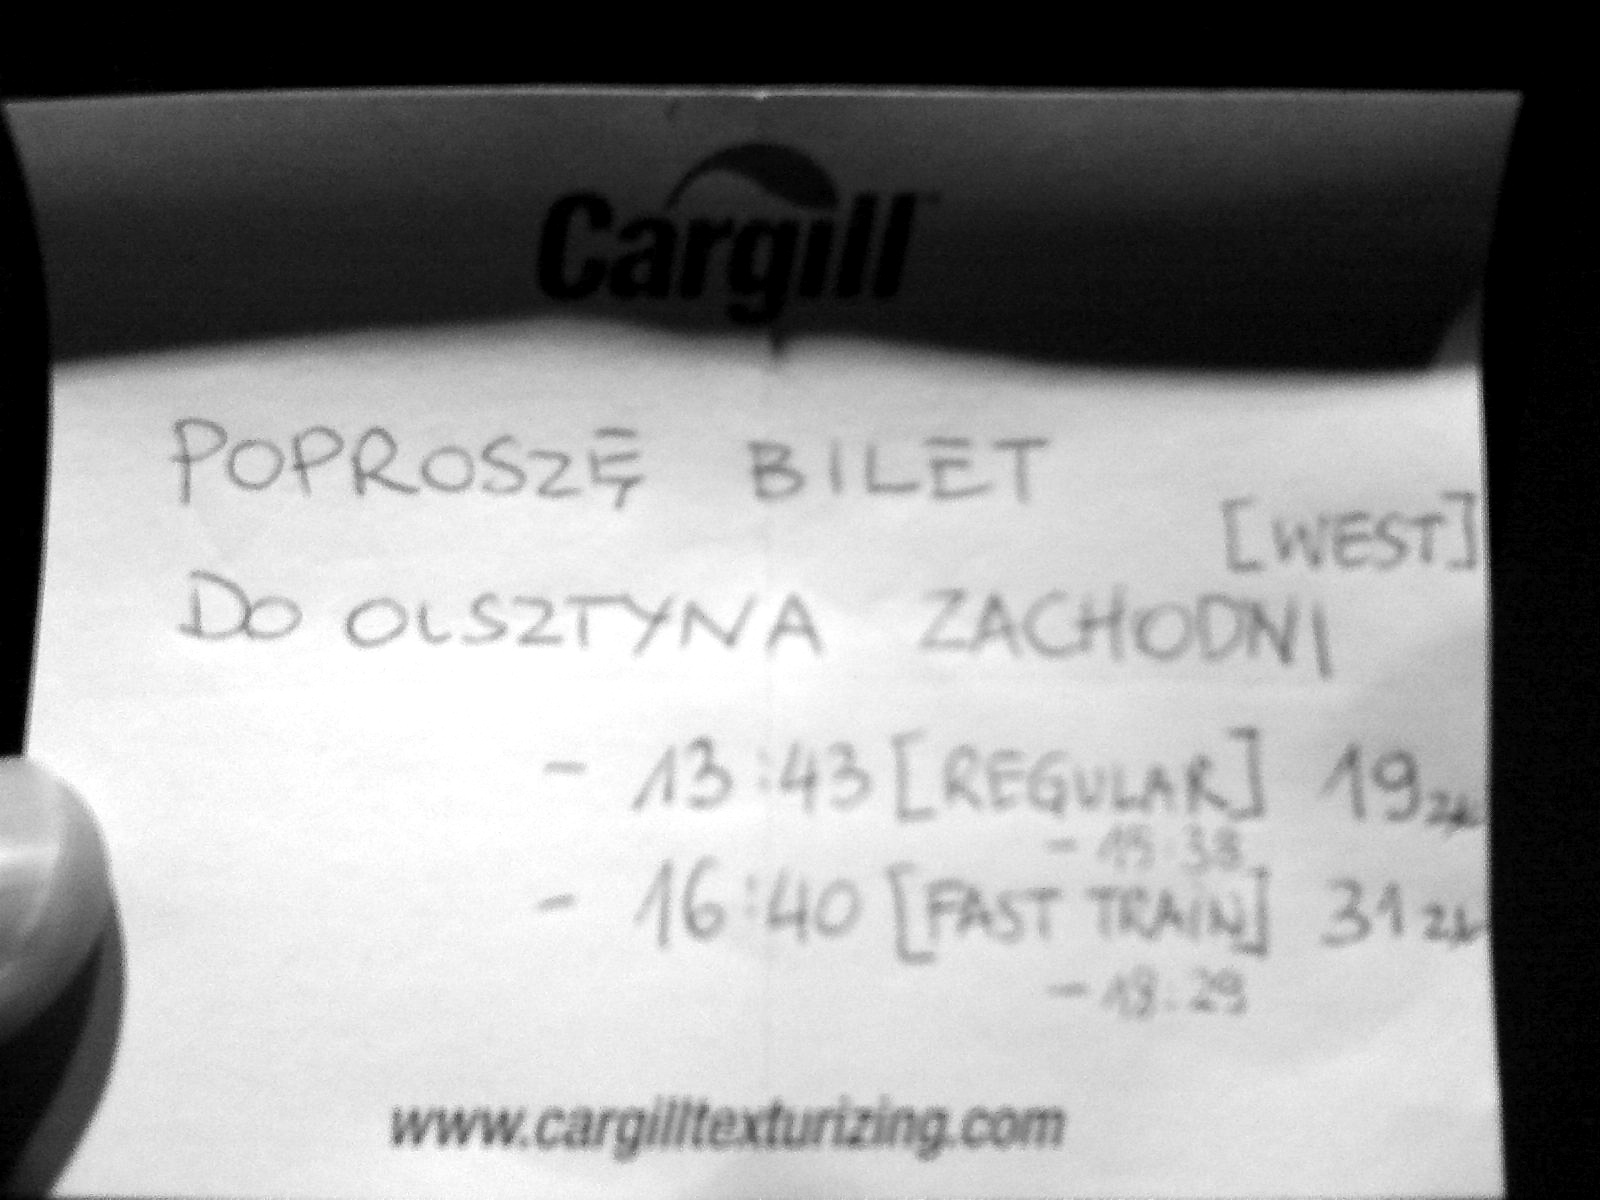 Cargill™
POPROSZĘ BILET
[WEST]
DO OLSZTYNA ZACHODNI
- 13:43 [REGULAR] 19 zł
- 15:38
- 16:40 [FAST TRAIN] 31 zł
- 18:29
www.cargilltexturizing.com